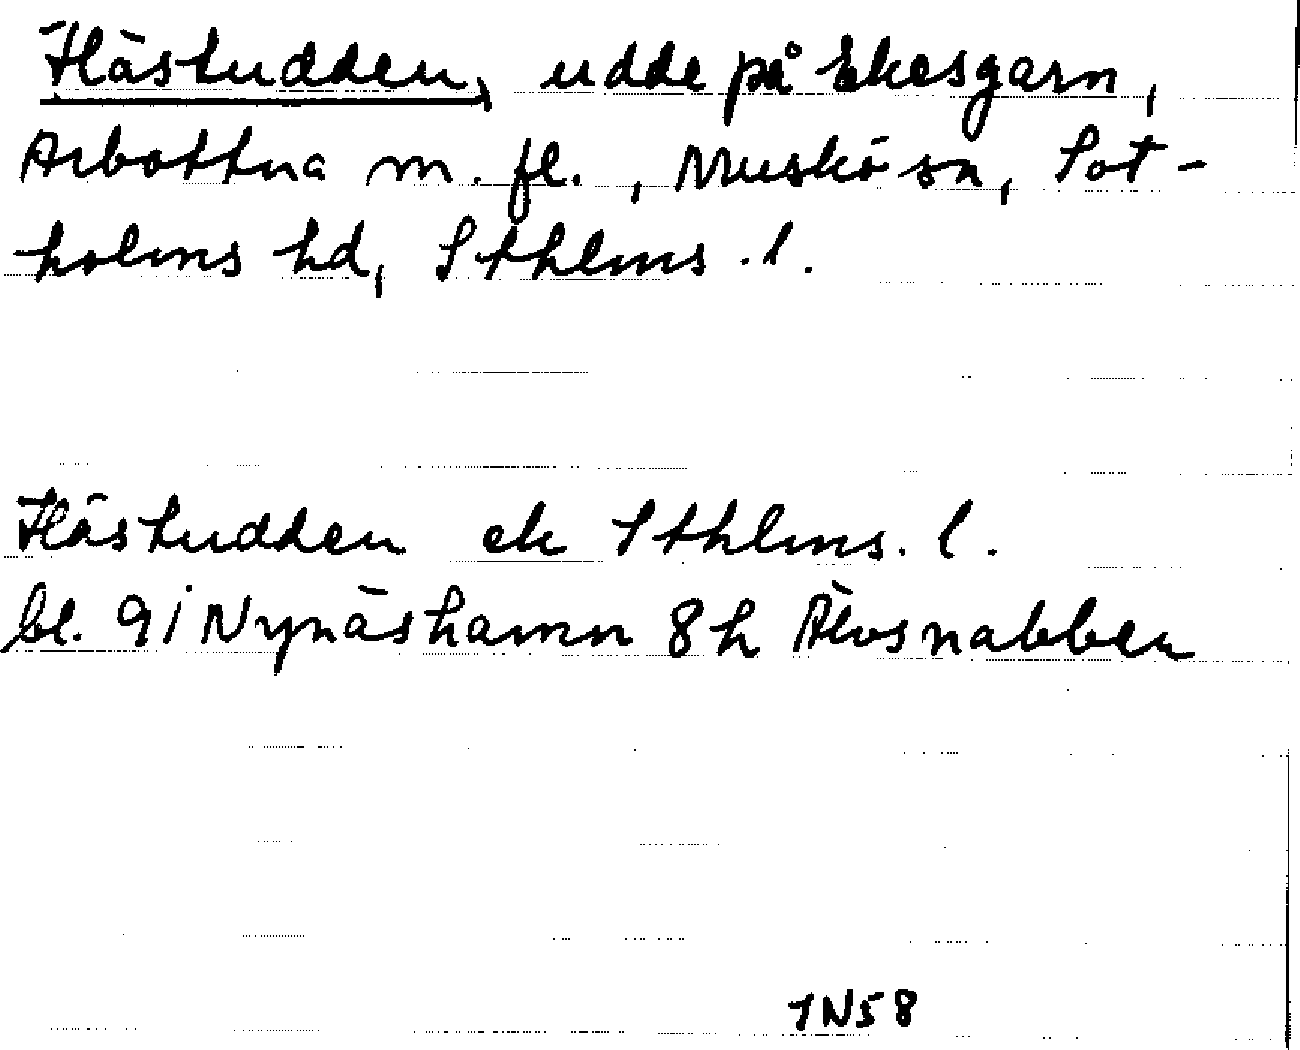 Hästudden, udde på Ekesgarn,
Arbottna m. fl., Muskö sn, Sot-
holms hd, Sthlms. l.
Hästudden ek Sthlms. l.
bl. 9i Nynäshamn 8h Älvsnabben
JN58